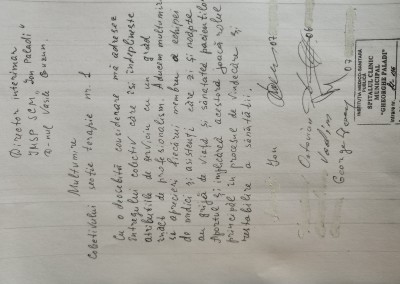 Director interimar
IMSP SCM "Ion Paladi"
D-nul Vasile Guzun.
Mulțumire
Colectivului secție terapie nr. 1
Cu o deosebită considerare mă adresez
întregului colectiv care își îndeplinește
atribuțiile de serviciu cu un grad
înalt de profesionalism. Aducem mulțumiri
și aprecieri fiecărui membru a echipei
de medici și asistenți care zi și noapte
au grijă de viața și sănătatea pacienților.
Aportul și implicarea acestora joacă rolul
principal în procesul de vindecare și
restabilire a sănătății.
Ion
07
George
INSTITUȚIA MEDICO-SANITARĂ
SPITALUL CLINIC
MUNICIPAL
"GHEORGHE PALADI"